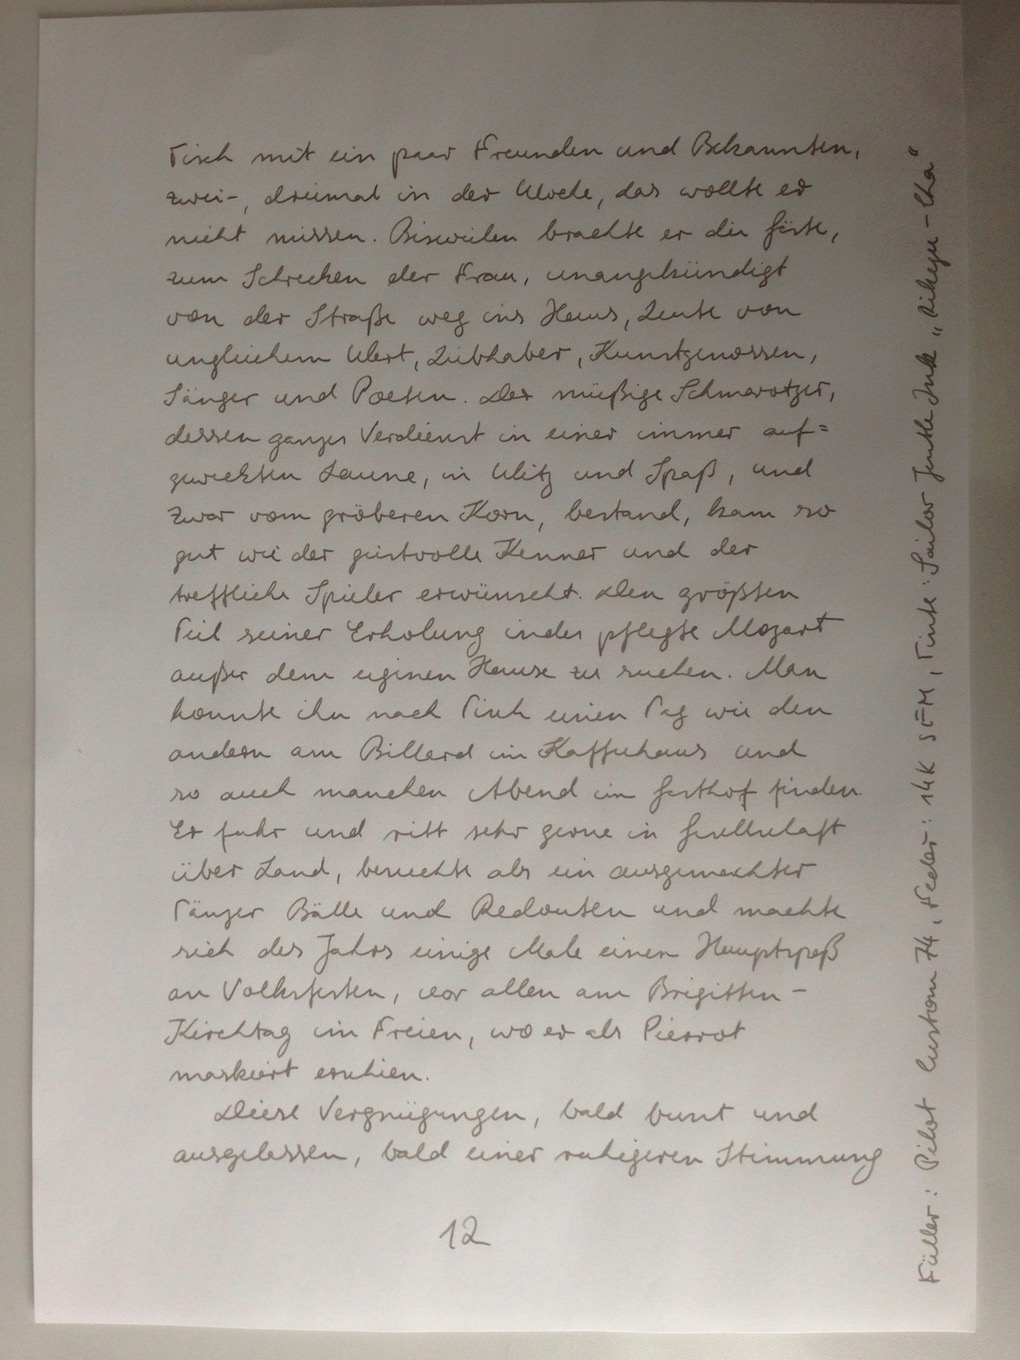 Tisch mit ein paar Freunden und Bekannten,
zwei-, dreimal in der Woche, das wollte er
nicht missen. Bisweilen brachte er die Gäste,
zum Schrecken der Frau, unangekündigt
von der Straße weg ins Haus, Leute von
ungleichem Wert, Liebhaber, Kunstgenossen,
Sänger und Poeten. Der müßige Schmarotzer,
dessen ganzes Verdienst in einer immer auf=
geweckten Laune, in Witz und Spaß, und
zwar vom gröberen Korn, bestand, kam so
gut wie der geistvolle Kenner und der
treffliche Spieler erwünscht. Den größten
Teil seiner Erholung indes pflegte Mozart
außer dem eigenen Hause zu suchen. Man
konnte ihn nach Tisch einen Tag wie den
andern am Billard im Kaffeehaus und
so auch manchen Abend im Gasthof finden.
Er fuhr und ritt sehr gerne in Gesellschaft
über Land, besuchte als ein ausgemachter
Tänzer Bälle und Redouten und machte
sich des Jahrs einige Male einen Hauptspaß
an Volksfesten, vor allen am Brigitten-
Kirchtag im Freien, wo er als Pierrot
maskiert erschien.
Diese Vergnügungen, bald bunt und
ausgelassen, bald einer ruhigeren Stimmung
12
Füller: Pilot Custom 74, Feder: 14K SFM, Tinte: Sailor Jentle Ink „Rikyu-Cha“